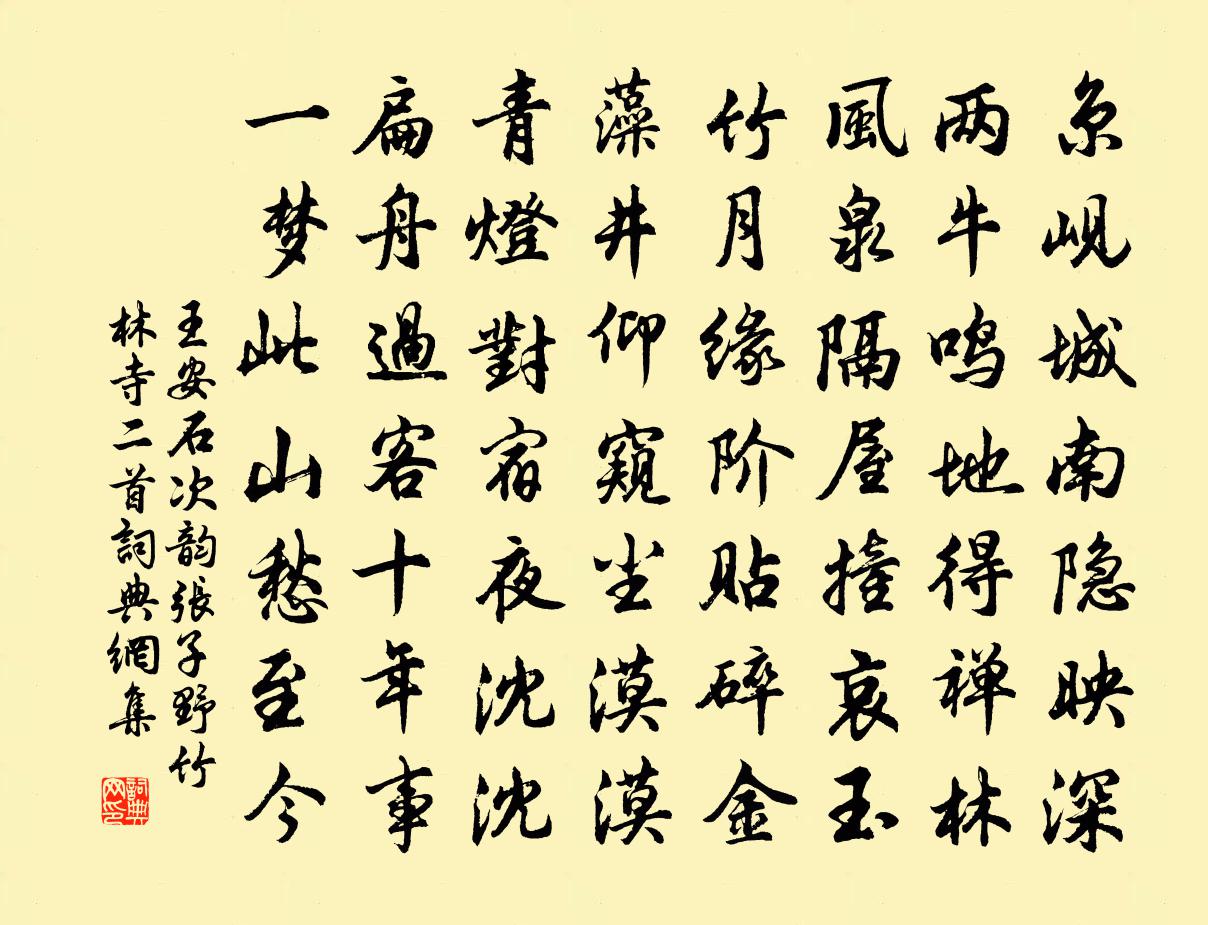 京岘城南隐映深
两牛鸣地得禅林
風泉隔屋撞哀玉
竹月缘阶贴碎金
藻井仰窺尘漠漠
青燈對宿夜沈沈
扁舟過客十年事
一梦此山愁至今
王安石次韵張子野竹
林寺二首詞典網集
詞典
网印